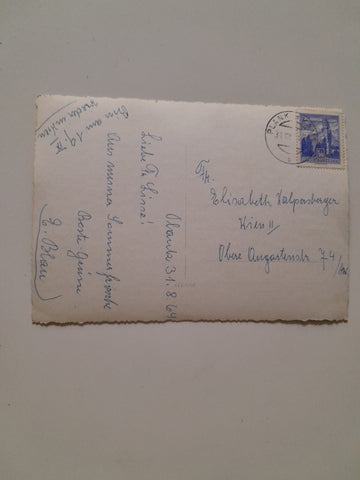 Planka 31.8.64
Liebe Fr. Lisse!
Aus meiner Sommerfrische
Beste Grüsse
E. Blau
Bin am 19. IX
wieder in Wien
Fr.
Elisabeth Halpersberger
Wien II
Obere Augartenstr. 74
PLANK